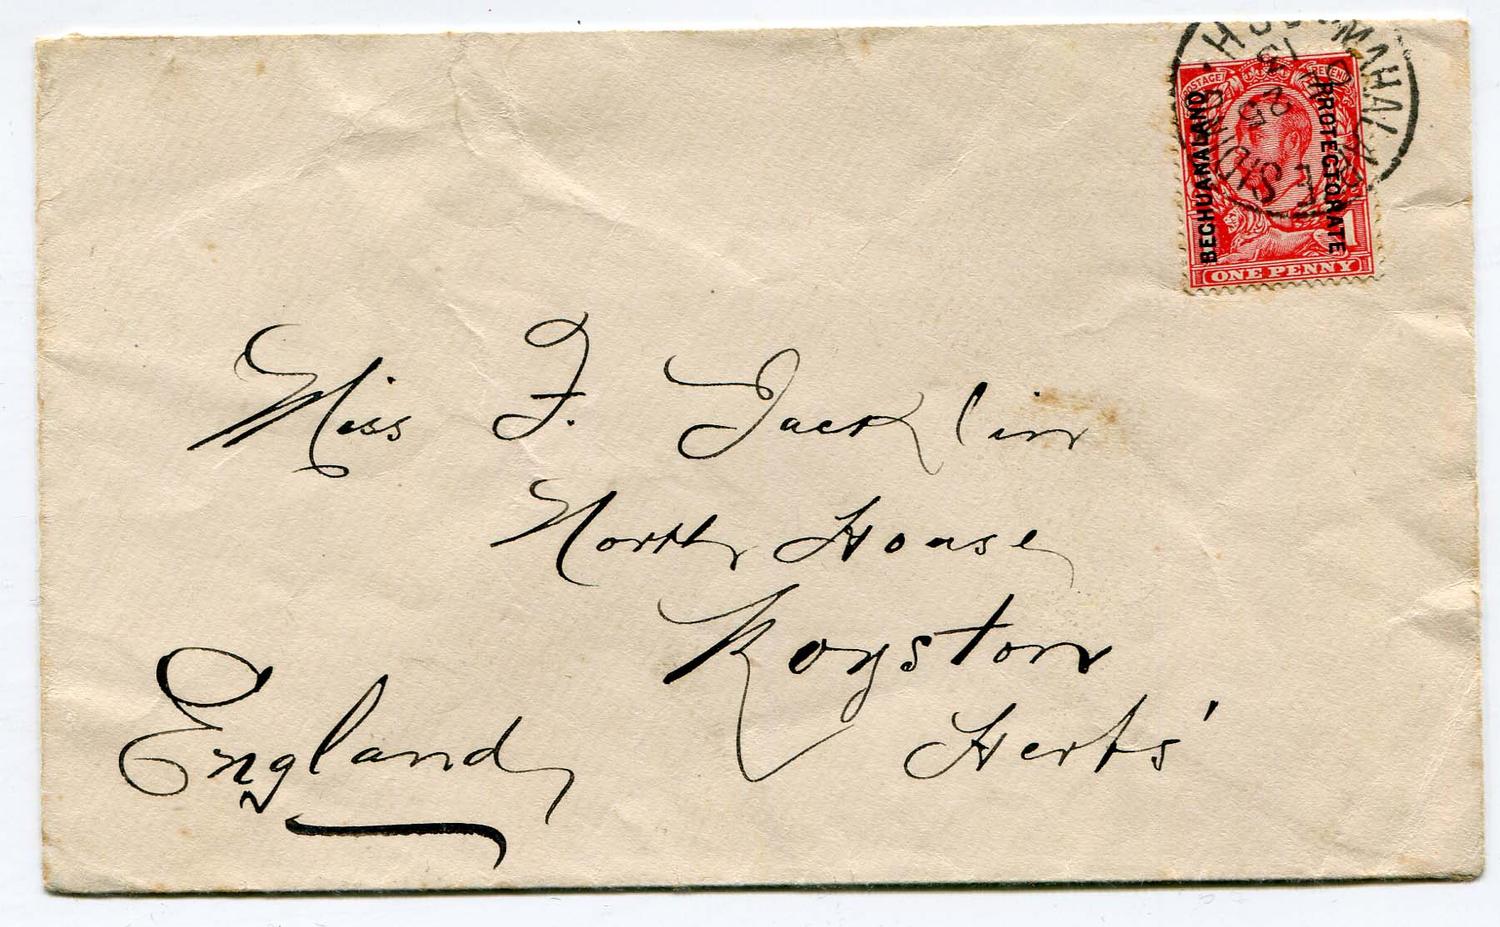 POSTAGE REVENUE
BECHUANALAND PROTECTORATE
1
ONE PENNY
25
13
Miss F. Jacklin
North House
Royston
Herts'
England